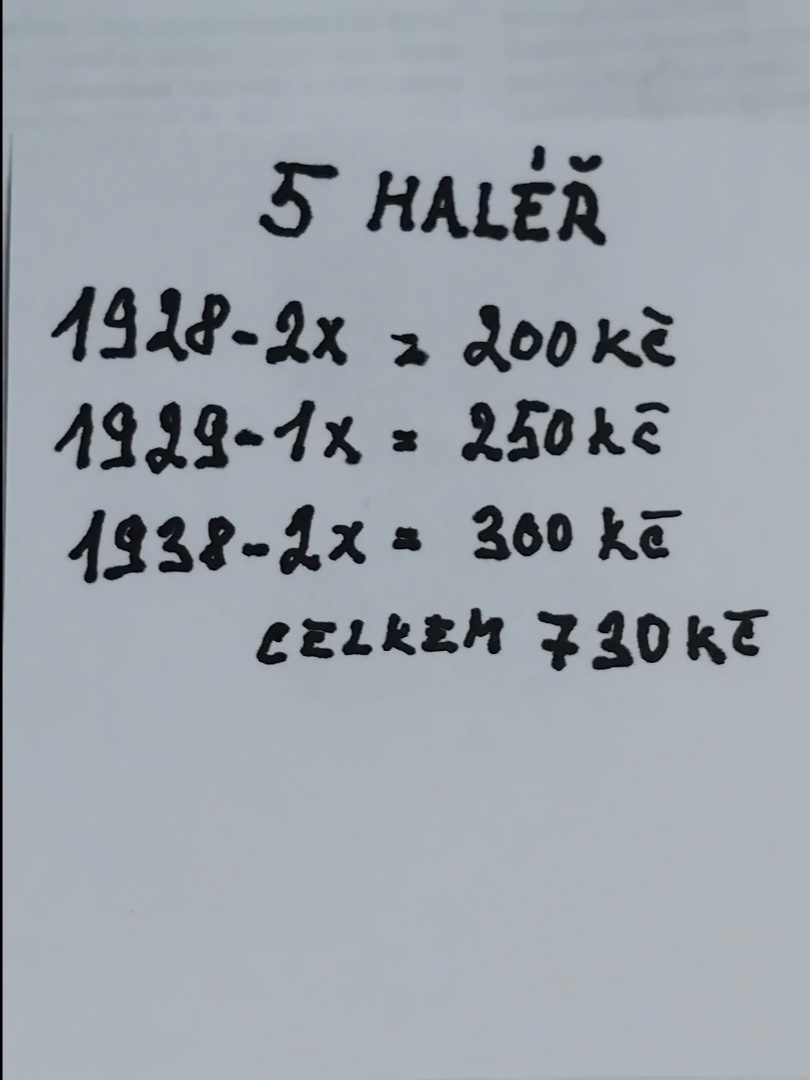 5 HALÉŘ
1928-2x = 200 kč
1929-1x = 250 kč
1938-2x = 300 kč
CELKEM 730 kč